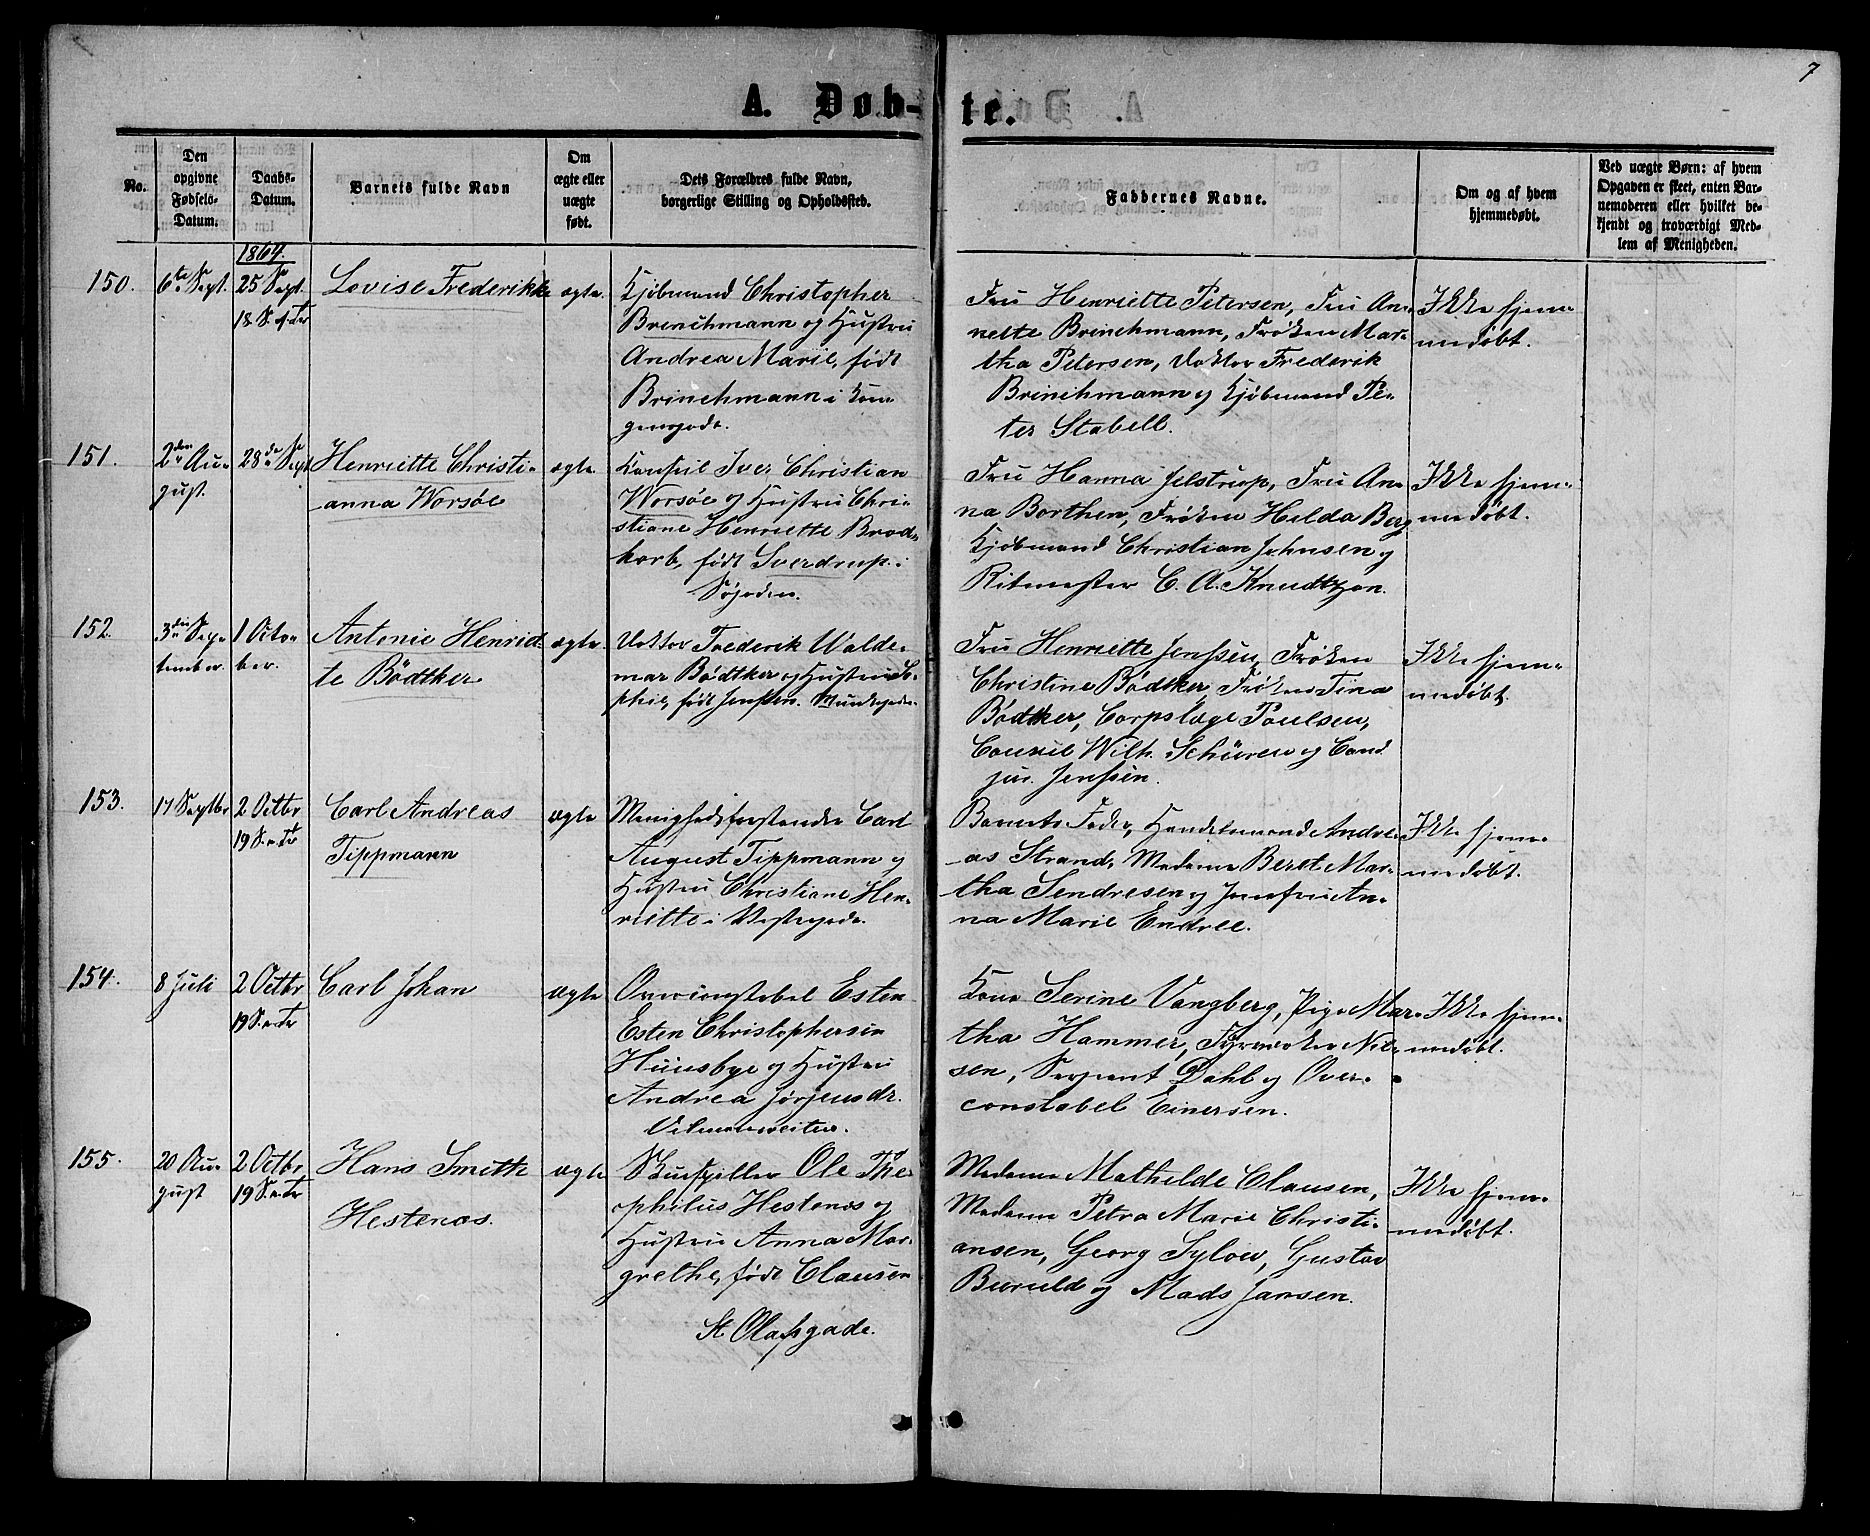 7
A. Døb-te.
No.
Den opgivne Fødsels-Datum.
Daabs-Datum.
Barnets fulde Navn
Om ægte eller uægte født.
Dets Forældres fulde Navn,
borgerlige Stilling og Opholdssted.
Faddernes Navne.
Om og af hvem
hjemmedøbt.
Ved uægte Børn: af hvem
Opgaven er skeet, enten Bar-
nemoderen eller hvilket be-
kjendt og troværdigt Med-
lem af Menigheden.
1864.
150.
6te Sept.
25 Sept.
18 S. e. Tr
Lovise Frederikke
ægte.
Kjøbmand Christopher
Brinchmann og Hustru
Andrea Marie, født
Brinchmann i Kon-
gensgade.
Fru Henriette Petersen, Fru An-
nette Brinchmann, Frøken Mar-
tha Petersen, Doktor Frederik
Brinchmann og Kjøbmand Pe-
ter Stabell.
Ikke hjem-
medøbt.
151.
2den Au-
gust.
28de Sept
Henriette Christi-
anna Worsøe
ægte
Konsul Iver Christian
Worsøe og Hustru Chri-
stiane Henriette Brod-
korb, født Sverdrup i
Søgaden.
Fru Hanna Jelstrup, Fru An-
na Borthen, Frøken Helda Berg
Kjøbmand Christian Johnsen og
Ritmester C. A. Knudtzon.
Ikke hjem-
medøbt.
152.
3die Sep-
tember.
1 Octo-
ber.
Antonie Henriet-
te Bödtker
ægte.
Doktor Frederik Walde-
mar Bødtker og Hustru So-
phie, født Jenssen. Munkegaden.
Fru Henriette Jenssen, Frøken
Christine Bødtker, Frøken Tina
Bödtker, Corpslæge Paulsen,
Consul Wilh. Schüren og Cand
jur. Jenssen.
Ikke hjem-
medøbt.
153.
17 Septbr
2 Octbr
19 S. e. Tr
Carl Andreas
Tippmann
ægte
Menighedsforstander Carl
August Tippmann og
Hustru Christiane Hen-
riette i Vestergade.
Barnets Fader, Handelsmand Andre-
as Strand, Madame Beret Mar-
tha Sendresen og Jomfru An-
na Marie Endree.
Ikke hjem-
medøbt.
154.
8 Juli
2 Octbr
19 S. e. Tr
Carl Johan
ægte
Overconstabel Esten
Esten Christophersen
Huusbye og Hustru
Andrea Jørgensdr.
Kone Serine Vangberg, Pige Mar-
tha Hammer, Fyrværker Niel-
sen, Sergeant Dahl og Over-
constabel Einersen.
Ikke hjem-
medøbt.
155.
20 Au-
gust
2 Octbr
19 S. e. Tr
Hans Smith
Hestenæs.
ægte
Skuespiller Ole The-
ophilus Hestenæs og
Hustru Anna Mar-
grethe, født Clausen
St. Olafsgade.
Madame Mathilde Clausen,
Madame Petra Marie Christi-
ansen, Georg Sylow, Gustav
Buruld og Mads Jansen.
Ikke hjem-
medøbt.